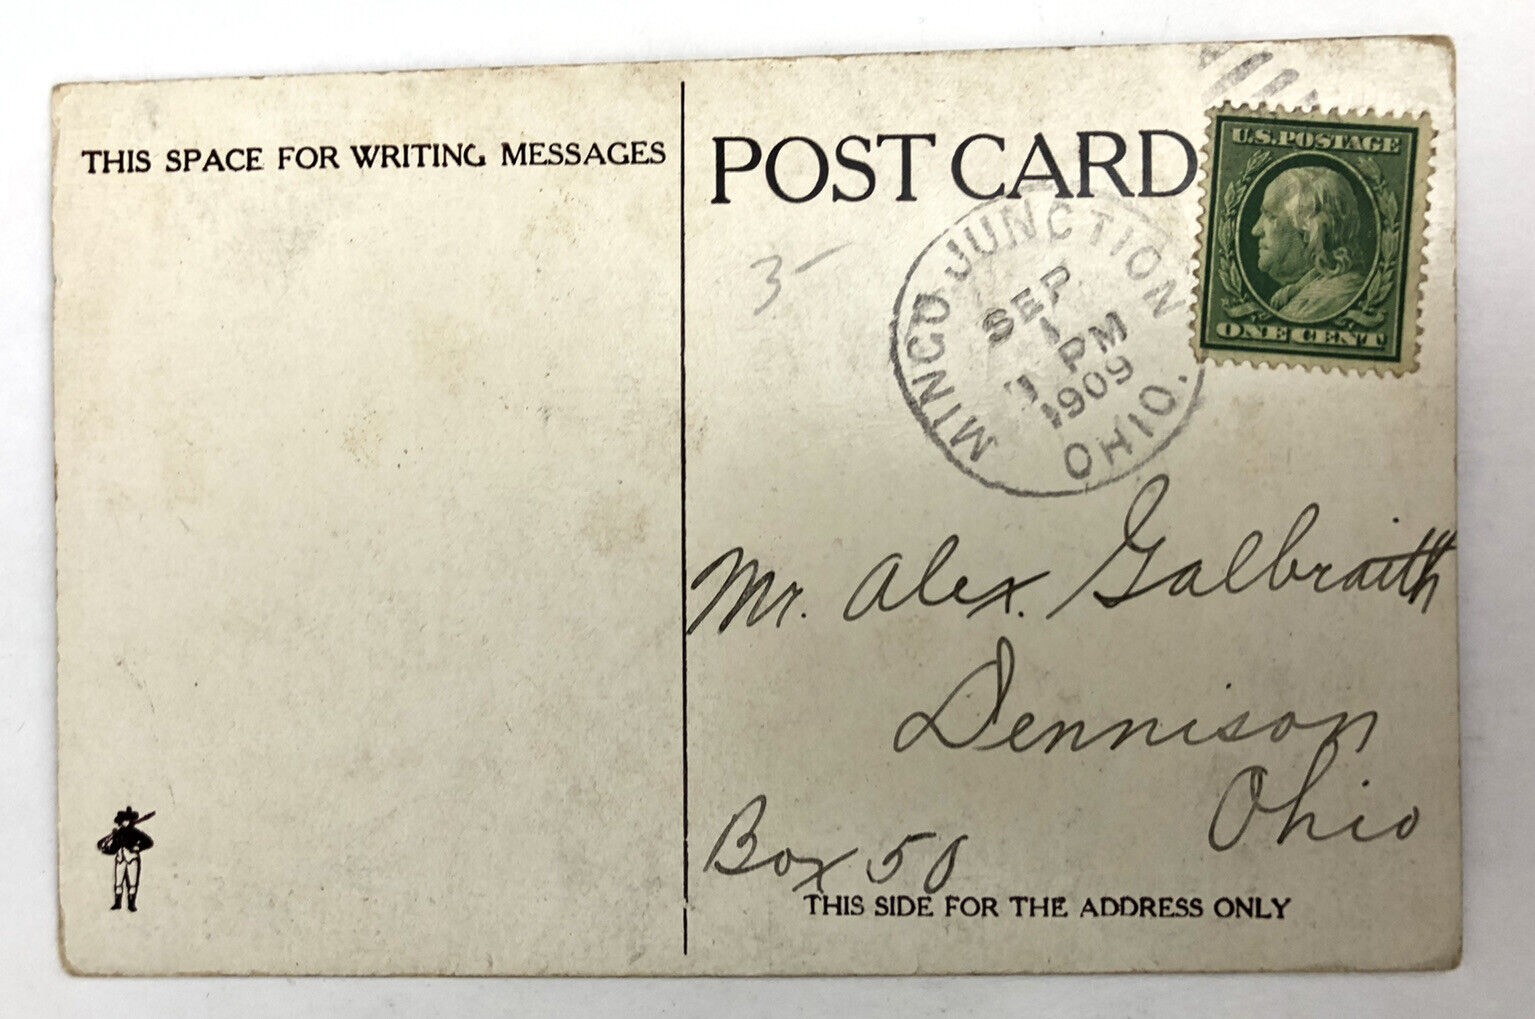 THIS SPACE FOR WRITING MESSAGES
POST CARD
U.S. POSTAGE
ONE CENT
3-
MINGO JUNCTION
SEP
1
PM
1909
OHIO.
Mr. Alex. Galbraith
Dennison
Ohio
Box 50
THIS SIDE FOR THE ADDRESS ONLY